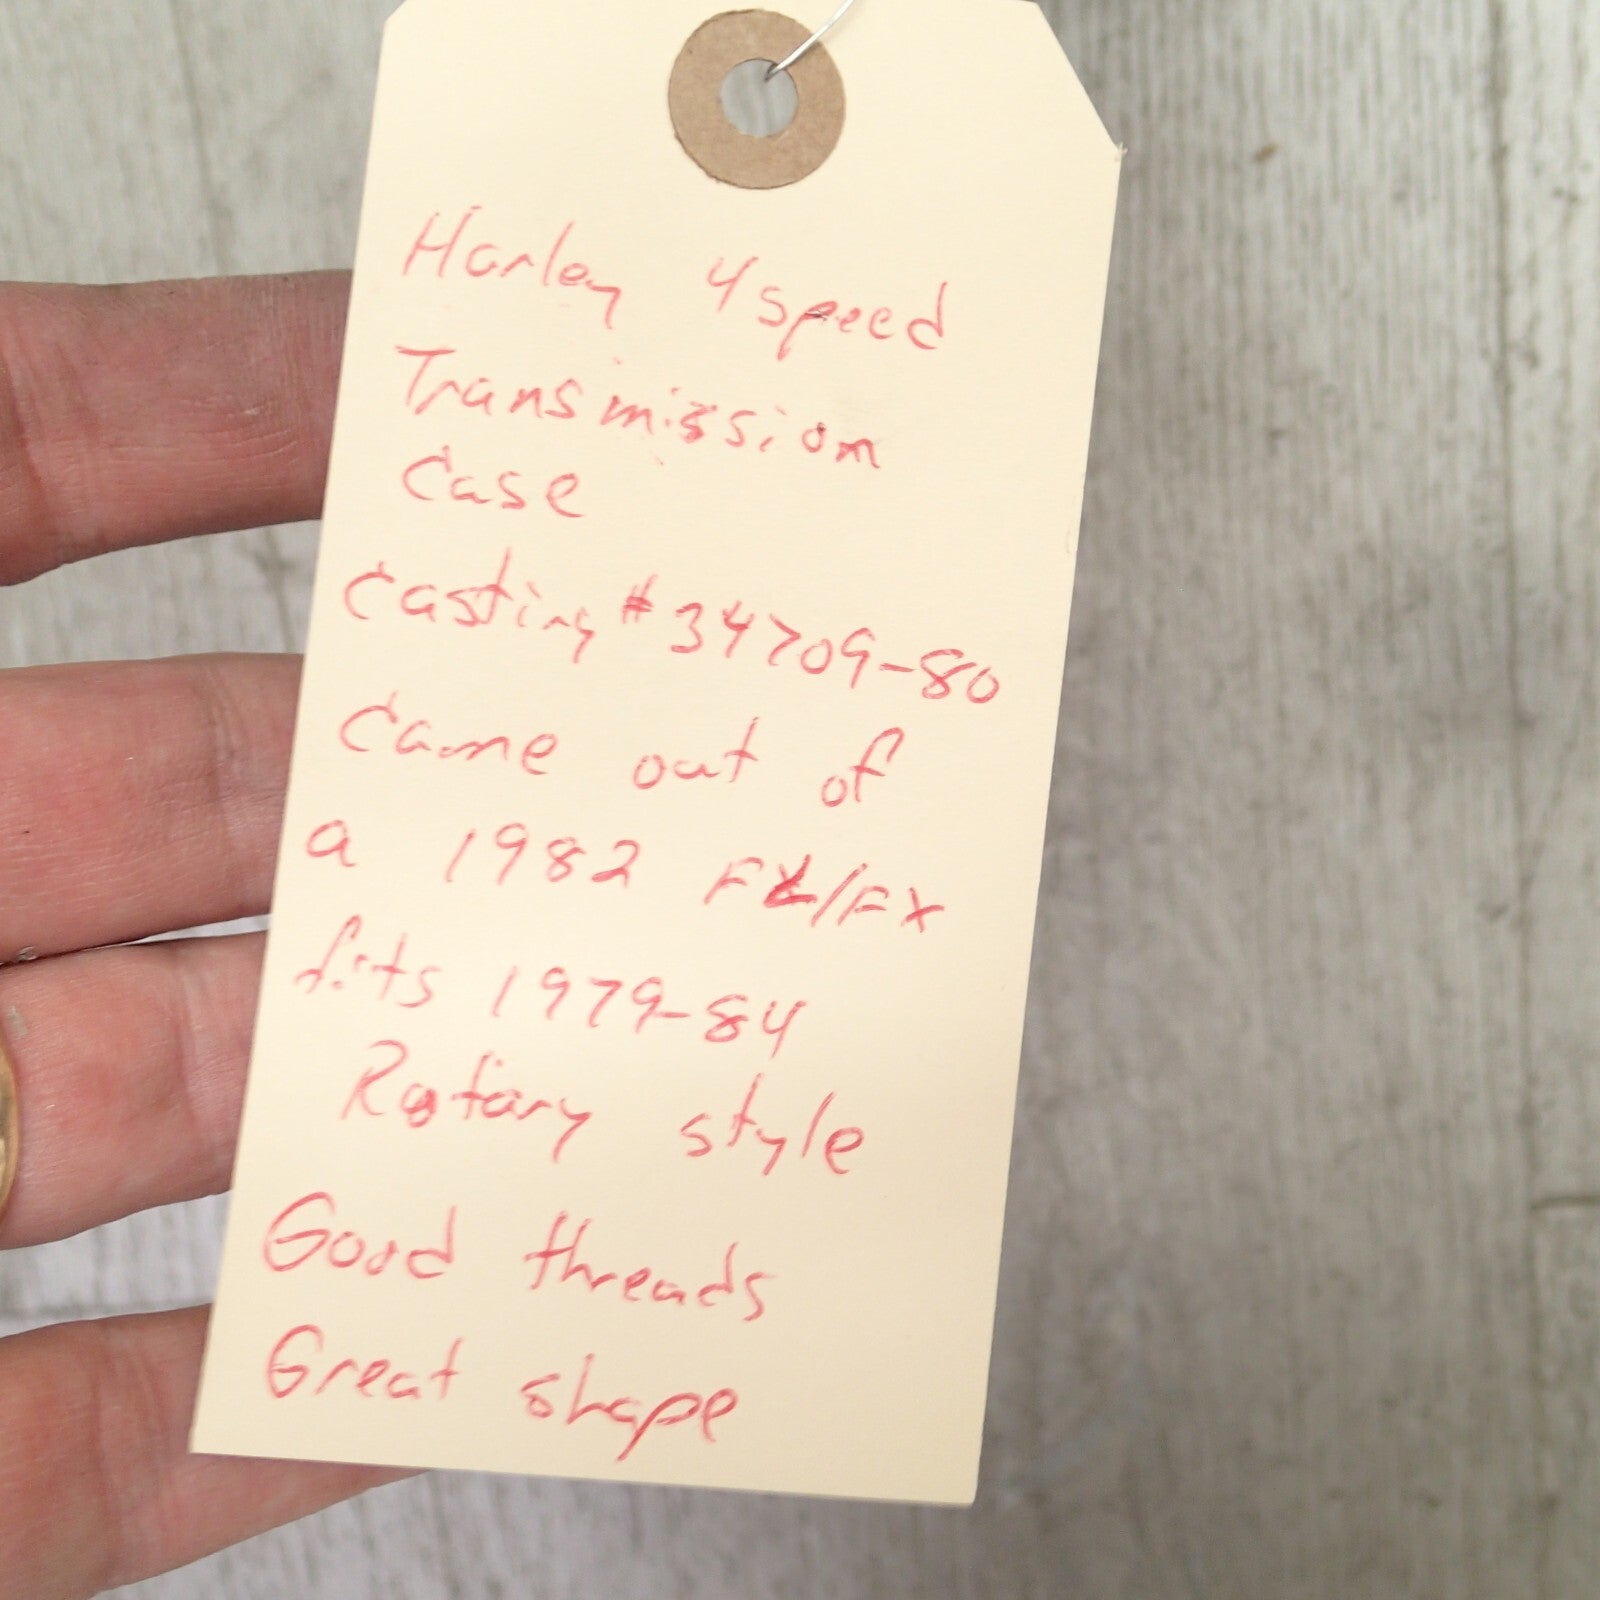 Harley 4 speed
Transmission
Case
Casting # 34709-80
Came out of
a 1982 FL/FX
fits 1979-84
Rotary style
Good threads
Great shape